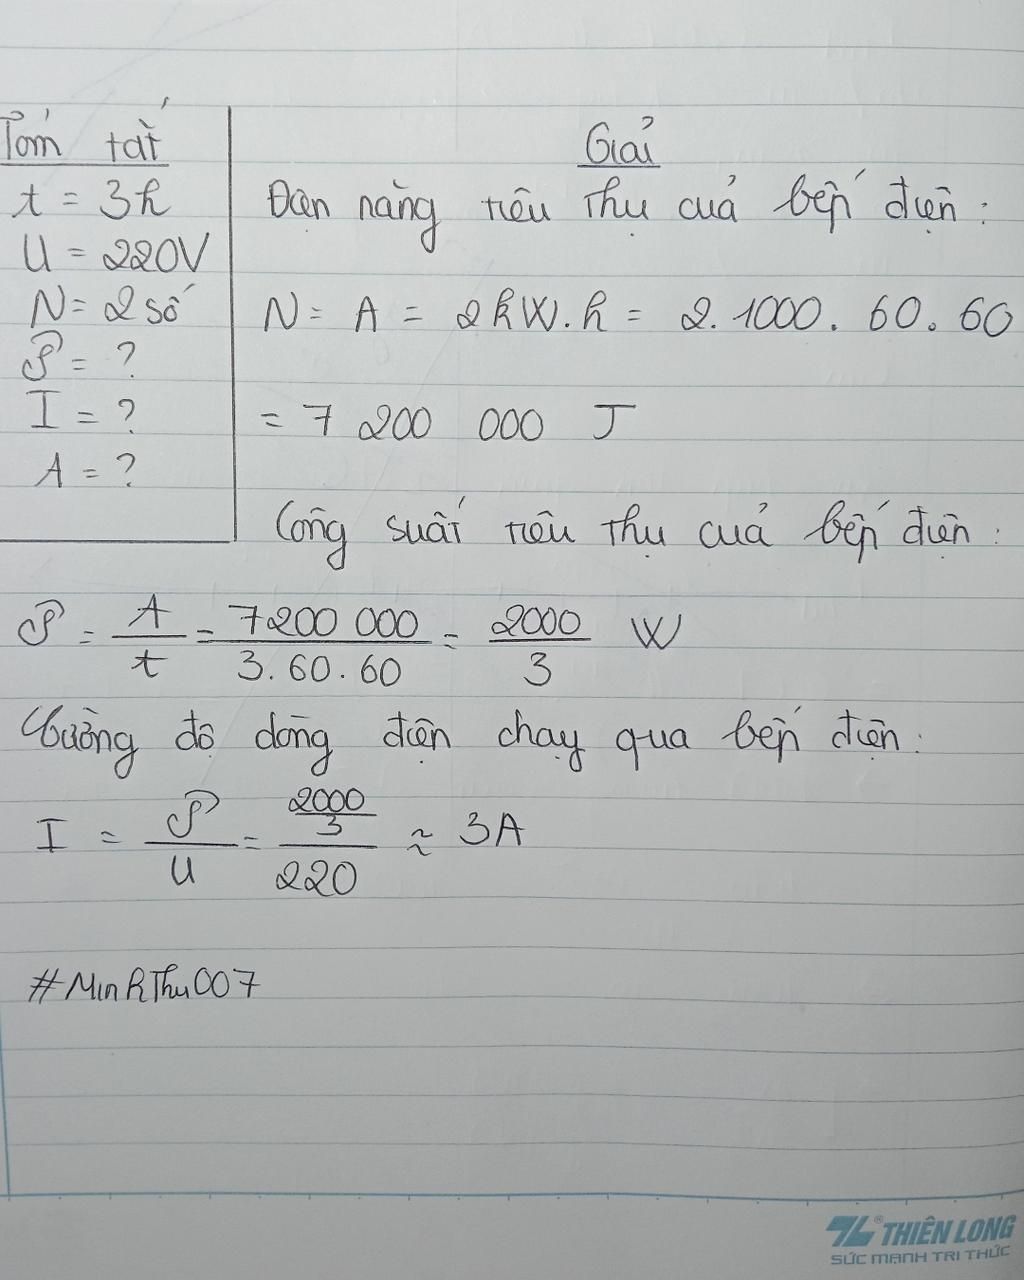 Tóm tắt
t = 3h
U = 220V
N = 2 số
P = ?
I = ?
A = ?
Giải
Điện năng tiêu thụ của bếp điện :
N = A = 2kW.h = 2.1000.60.60
= 7 200 000 J
Công suất tiêu thụ của bếp điện :
P = A/t = 7200 000/3.60.60 = 2000/3 W
Cường độ dòng điện chạy qua bếp điện :
I = P/U = 2000/3/220 ≈ 3A
#MinhThu007
TL® THIÊN LONG
SỨC MẠNH TRI THỨC